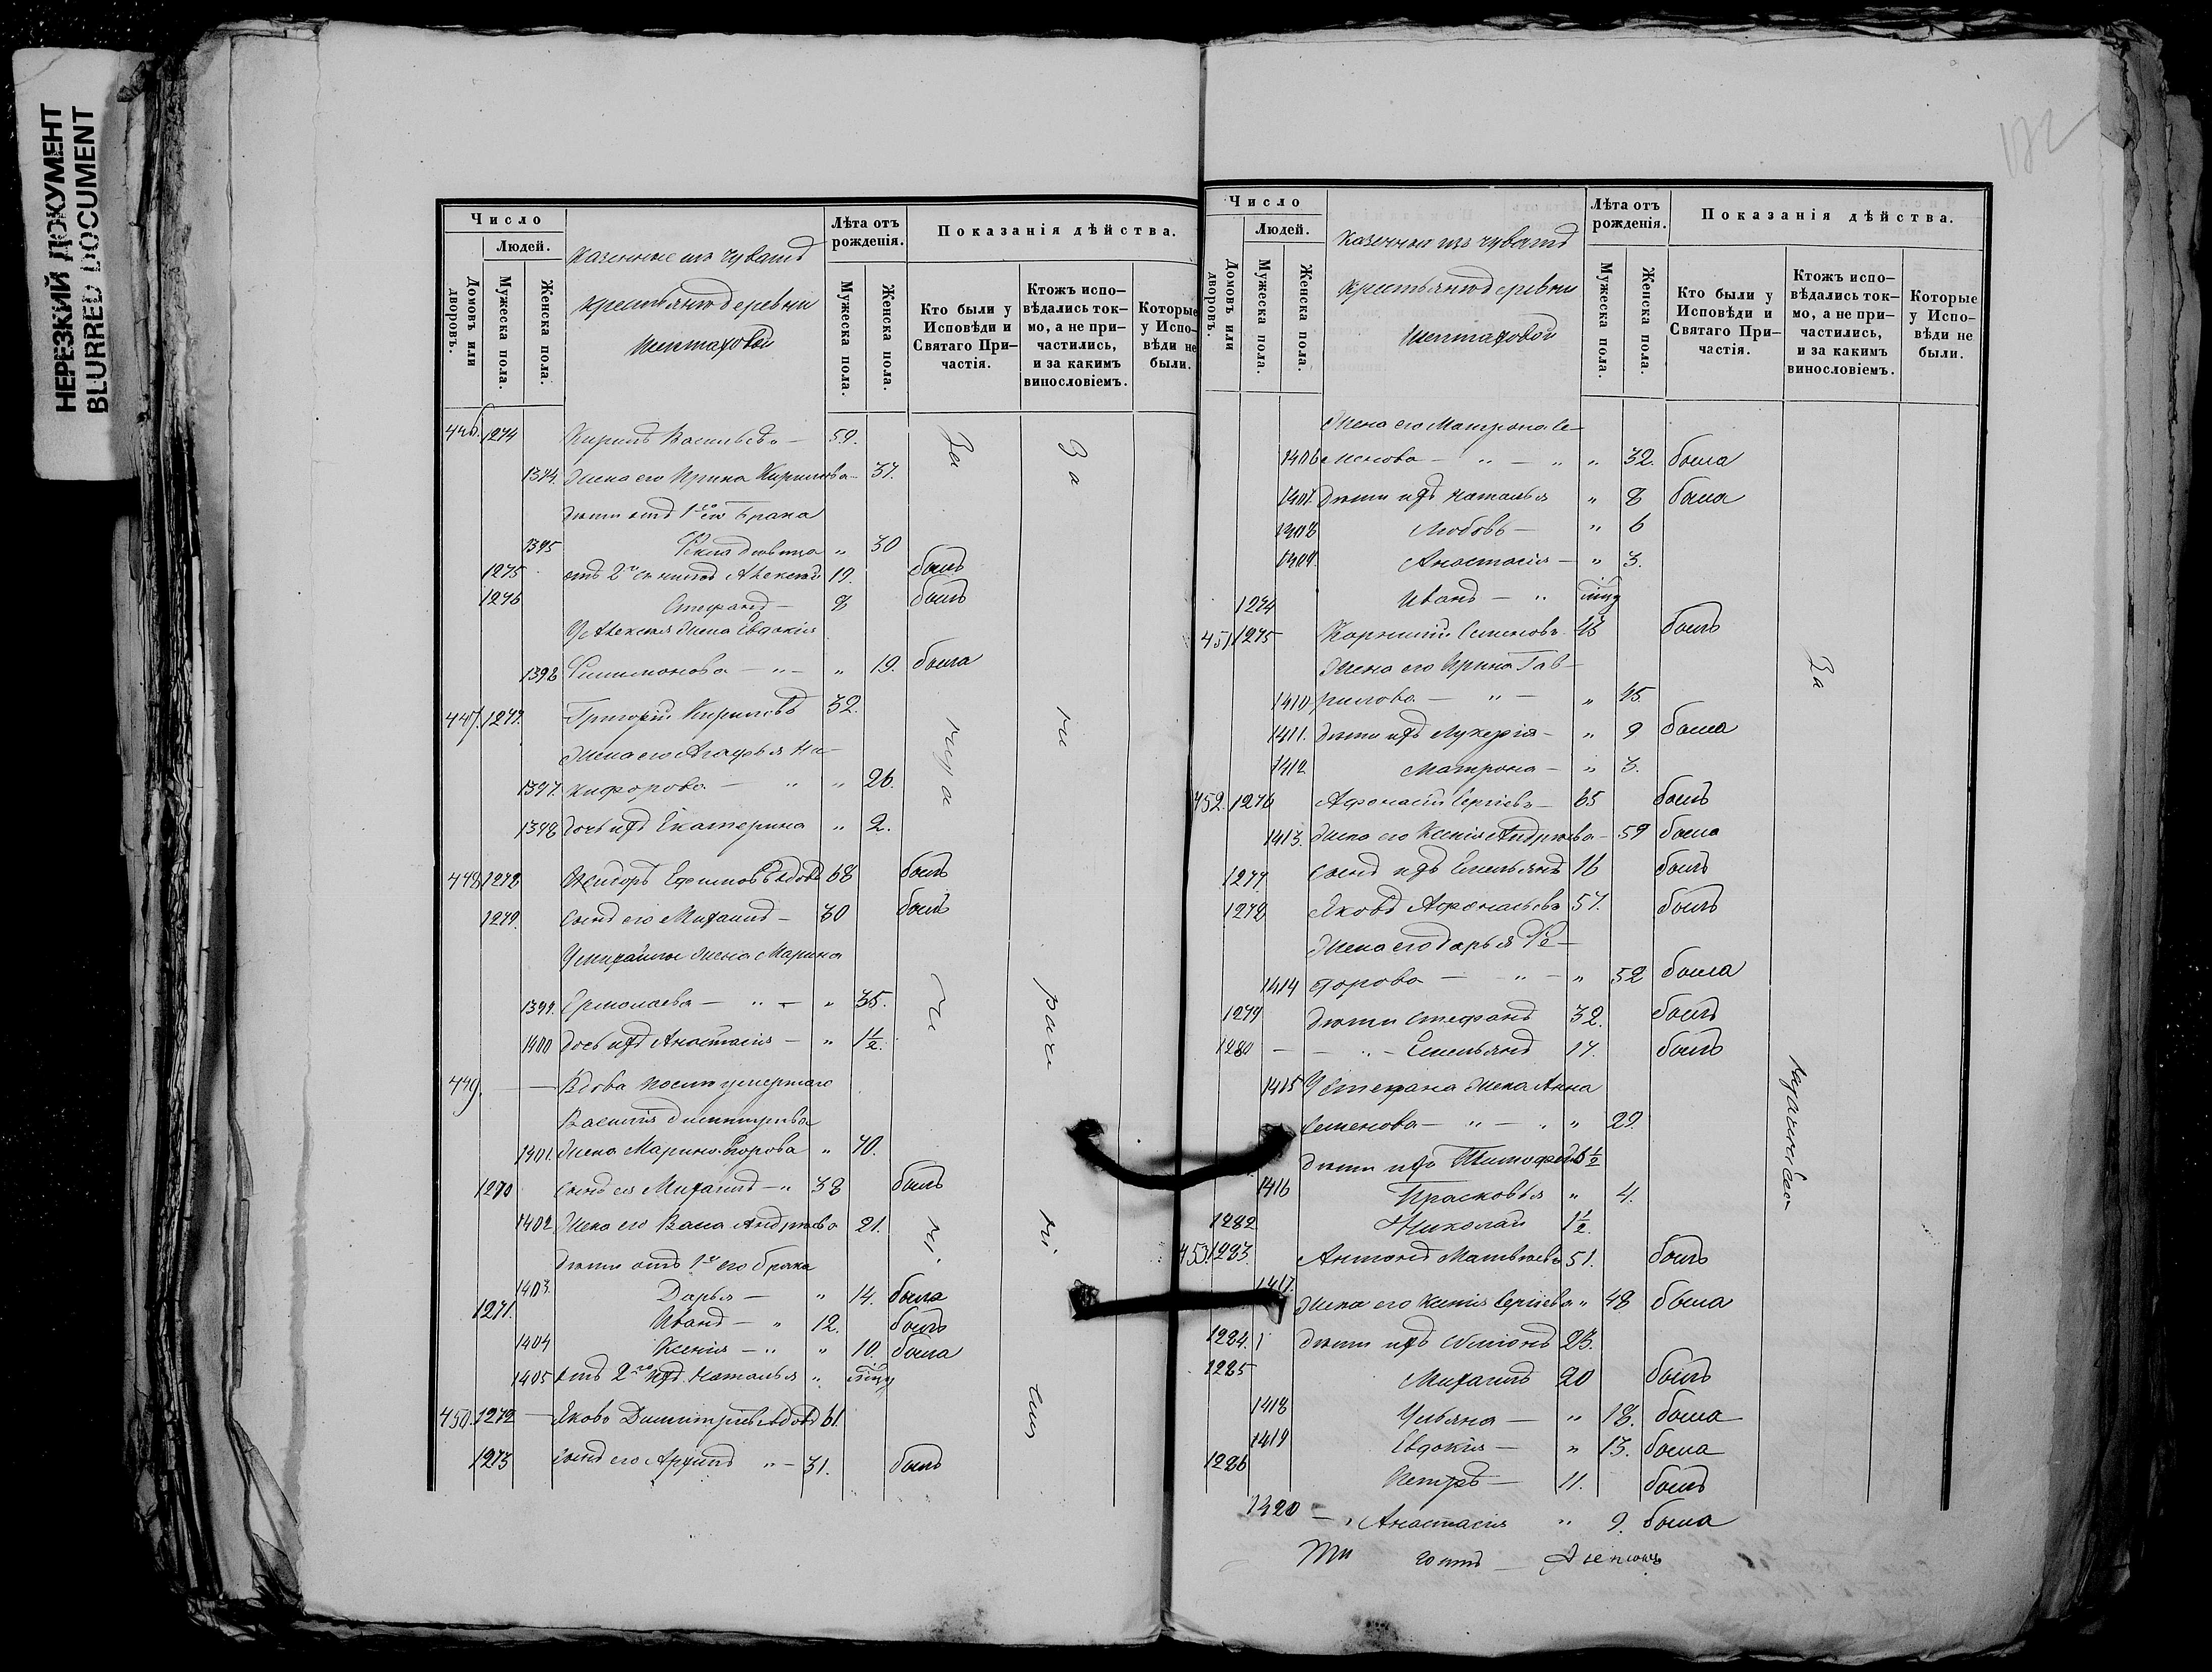 НЕРЕЗКИЙ ДОКУМЕНТ
BLURRED DOCUMENT
Число
Людей.
Домовъ или дворовъ.
Мужеска пола.
Женска пола.
Казенные изъ чувашъ
крестьянъ деревни
Шептаховой
Лѣта отъ рожденія.
Мужеска пола.
Женска пола.
Показанія дѣйства.
Кто были у Исповѣди и Святаго При-частія.
Ктожъ испо-вѣдались ток-мо, а не при-частились, и за какимъ винословіемъ.
Которые у Испо-вѣди не были.
446. 1274 Кирилъ Васильевъ — 59.
1394. Жена его Ирина Кирилова — 37.
дѣти отъ 1го его брака
1395 Фекла дѣвица " 30
1275 отъ 2го съ нимъ Алексѣй 19. былъ
1276 Стефанъ — 8 былъ
У Алексѣя жена Евдокія
1396 Филимонова — " — " 19. была
447. 1277. Григорій Кириловъ 32.
Жена его Агафья Ни-
1397. кифорова — " " 26.
1398 дочь ихъ Екатерина " 2.
448 1278 Ефимовъ вдовъ 68 былъ
1279. сынъ его Михаилъ — 30 былъ
У Михаила жена Марина
1399. Ермолаева — " — " 35.
1400 дочь ихъ Анастасія — " 1½.
449. — — Вдова послѣ умершаго
Василія Димитріева
1401. жена Марина Егорова " 70.
1270 сынъ ея Михаилъ — " 38 былъ
1402 Жена его Васа Андреева 21.
дѣти отъ 1го его брака
1403. Дарья — " 14. была
1271. Иванъ — " 12. былъ
1404 Ксенія — " " 10. была
1405 отъ 2го ихъ Наталья "
450. 1272 — Яковъ Димитріевъ вдовъ 61.
1273 сынъ его Архипъ " — 31. былъ
За
За
ни
ра
чи
ни
Число
Людей.
Домовъ или дворовъ.
Мужеска пола.
Женска пола.
Казенные изъ чувашъ
крестьянъ деревни
Шептаховой
Лѣта отъ рожденія.
Мужеска пола.
Женска пола.
Показанія дѣйства.
Кто были у Исповѣди и Святаго При-частія.
Ктожъ испо-вѣдались ток-мо, а не при-частились, и за какимъ винословіемъ.
Которые у Испо-вѣди не были.
Жена его Матрона Се-
1406 менова — " — " " 32. была
1407. дѣти ихъ Наталья " 8 была
1408 Любовь — " 6
1409. Анастасія — " 3.
1274 Иванъ — "
451 1275 Корнилій Семеновъ 43 былъ
Жена его Ирина Гав-
1410 рилова — " — " 45.
1411. дѣти ихъ Лукерія — " 9 была
1412 Матрона — " 3.
452. 1276 Афонасій Сергіевъ — 65 былъ
1413. Жена его Ксенія Андреева — 59 была
1277 сынъ ихъ Емельянъ 16 былъ
1278 Яковъ Афонасьевъ 57. былъ
Жена его Дарья Фе-
1414 дорова — " — " 52 была
1279 дѣти Стефанъ 32. былъ
1280 — — " — Емельянъ 17. былъ
1415 У Стефана жена Анна
Семенова — " — " " 29.
дѣти ихъ Тимофей ½
1416 Прасковья " 4.
1282 Николай 1½.
453. 1283. Антонъ Матвѣевъ 51. былъ
1417. Жена его Ксенія Сергіева " 48 была
1284. дѣти ихъ Симіонъ 23.
1285 Михаилъ 20 былъ
1418 Ульяна — " 18. была
1419 Евдокія — " 13. была
1286 Петръ — 11. былъ
1420 — " Анастасія " 9. была
За